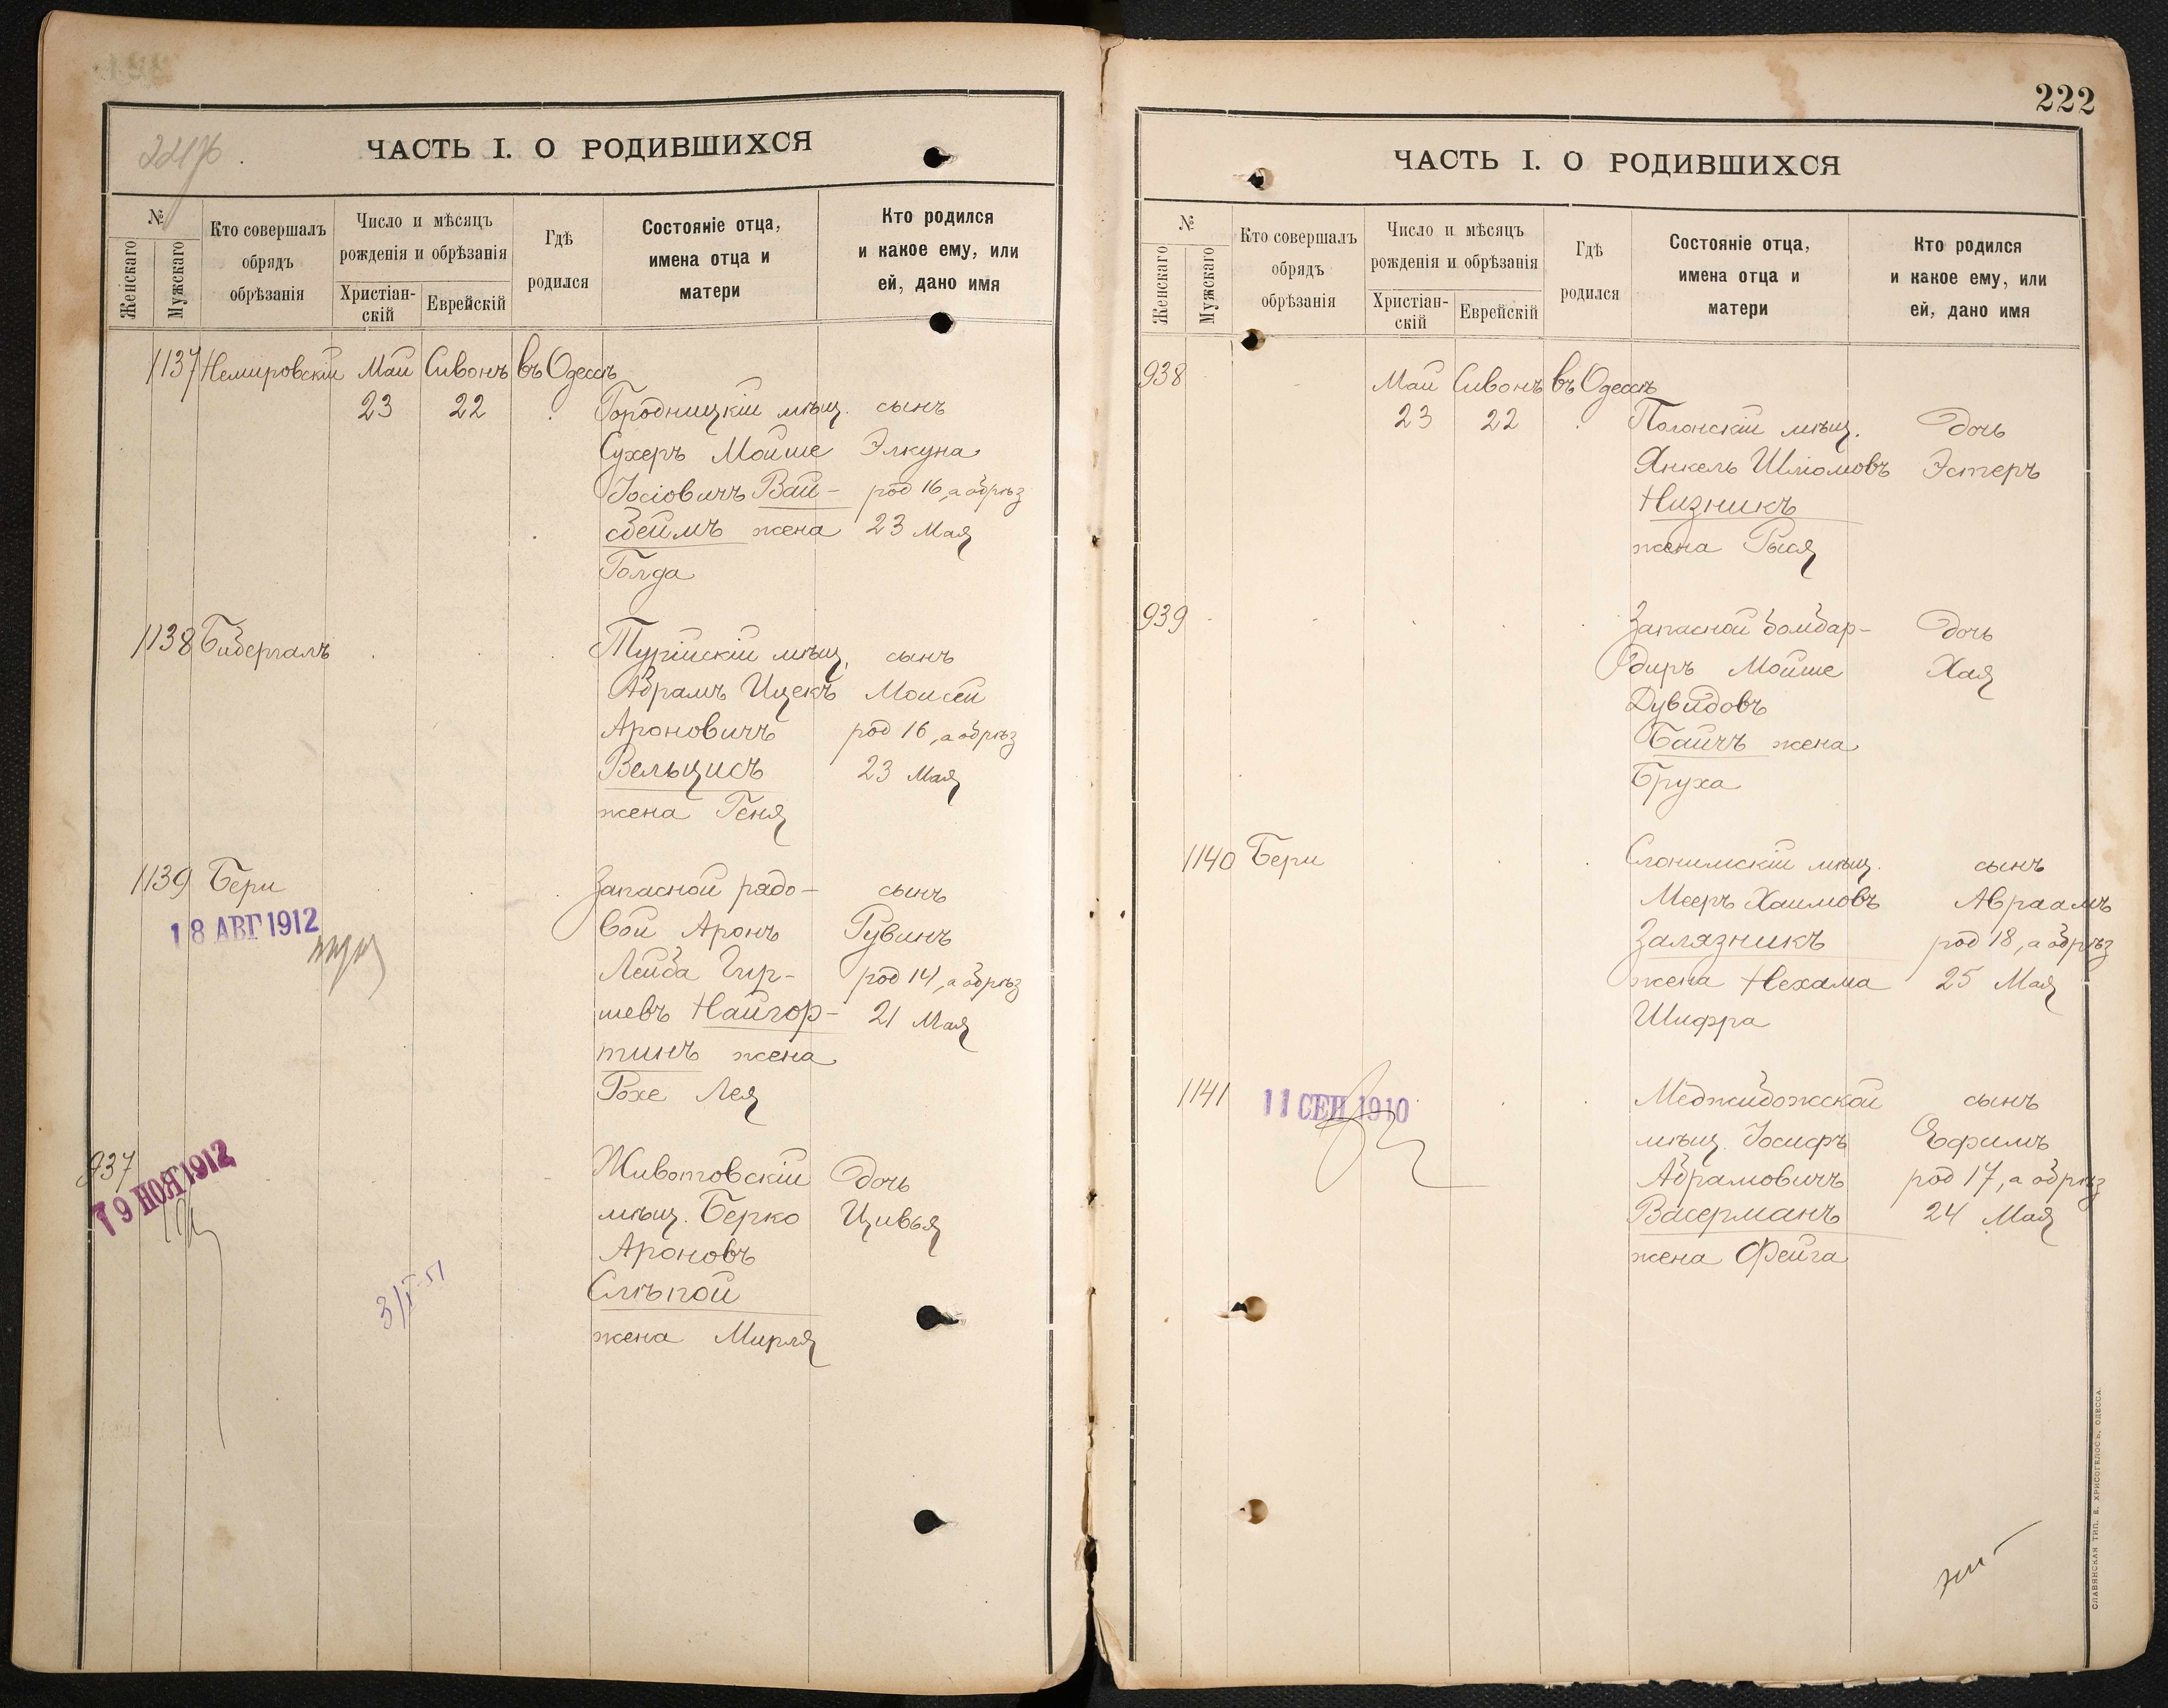 ЧАСТЬ I. О РОДИВШИХСЯ
№
Женскаго
Мужскаго
Кто совершалъ
обрядъ
обрѣзанія
Число и мѣсяцъ
рожденія и обрѣзанія
Христіан-
скій
Еврейскій
Гдѣ
родился
Состояніе отца,
имена отца и
матери
Кто родился
и какое ему, или
ей, дано имя
1137 Немировскій Май Сивонъ въ Одессѣ
23 22 Городницкій мѣщ. сынъ
Сухеръ Мойше Элкуна
Іосіовичъ Вай- род 16, а обрѣз
сбеймъ жена 23 Мая
Голда
1138 Бибергалъ Турійскій мѣщ. сынъ
Абрамъ Ицекъ Моисей
Ароновичъ род 16, а обрѣз
Вельцисъ 23 Мая
жена Геня
1139 Бери Запасной рядо- сынъ
18 АВГ 1912 вой Аронъ Рувинъ
Лейба Гир- род 14, а обрѣз
шевъ Найгор- 21 Мая
тинъ жена
Рохе Лея
937 Животовскій дочь
19 НОЯ 1912 мѣщ. Берко Цивья
Ароновъ
Слѣпой
жена Мирля
222
ЧАСТЬ I. О РОДИВШИХСЯ
№
Женскаго
Мужскаго
Кто совершалъ
обрядъ
обрѣзанія
Число и мѣсяцъ
рожденія и обрѣзанія
Христіан-
скій
Еврейскій
Гдѣ
родился
Состояніе отца,
имена отца и
матери
Кто родился
и какое ему, или
ей, дано имя
938 Май Сивонъ въ Одессѣ
23 22 Погонскій мѣщ. дочь
Янкель Шліомовъ Эстеръ
Низникъ
жена Рыся
939 Запасной бомбар- дочь
диръ Мойше Хая
Дувидовъ
Байчъ жена
Бруха
1140 Бери Слонимскій мѣщ. сынъ
Мееръ Хаимовъ Авраамъ
Залязникъ род 18, а обрѣз
жена Нехама 25 Мая
Шифра
1141 11 СЕН 1910 Меджибожской сынъ
мѣщ. Іосифъ Ефимъ
Абрамовичъ род 17, а обрѣз
Васерманъ 24 Мая
жена Фейга
СЛАВЯНСКАЯ ТИП. Е. ХРИСОГЕЛОСЪ, ОДЕССА.